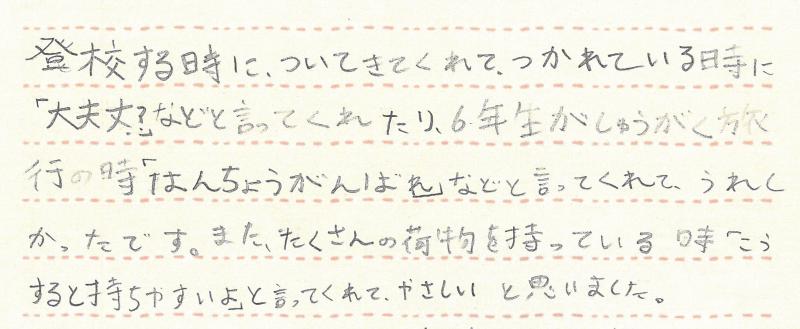 登校する時に、ついてきてくれて、つかれている時に
「大夫丈?」などと言ってくれたり、6年生がしゅうがく旅
行の時「はんちょうがんばれ」などと言ってくれて、うれし
かったです。また、たくさんの荷物を持っている時「こう
すると持ちやすいよ」と言ってくれて、やさしいと思いました。